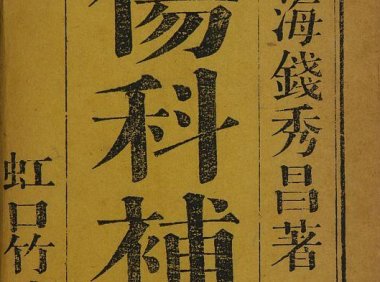 海錢秀昌著
傷科補
虹口竹